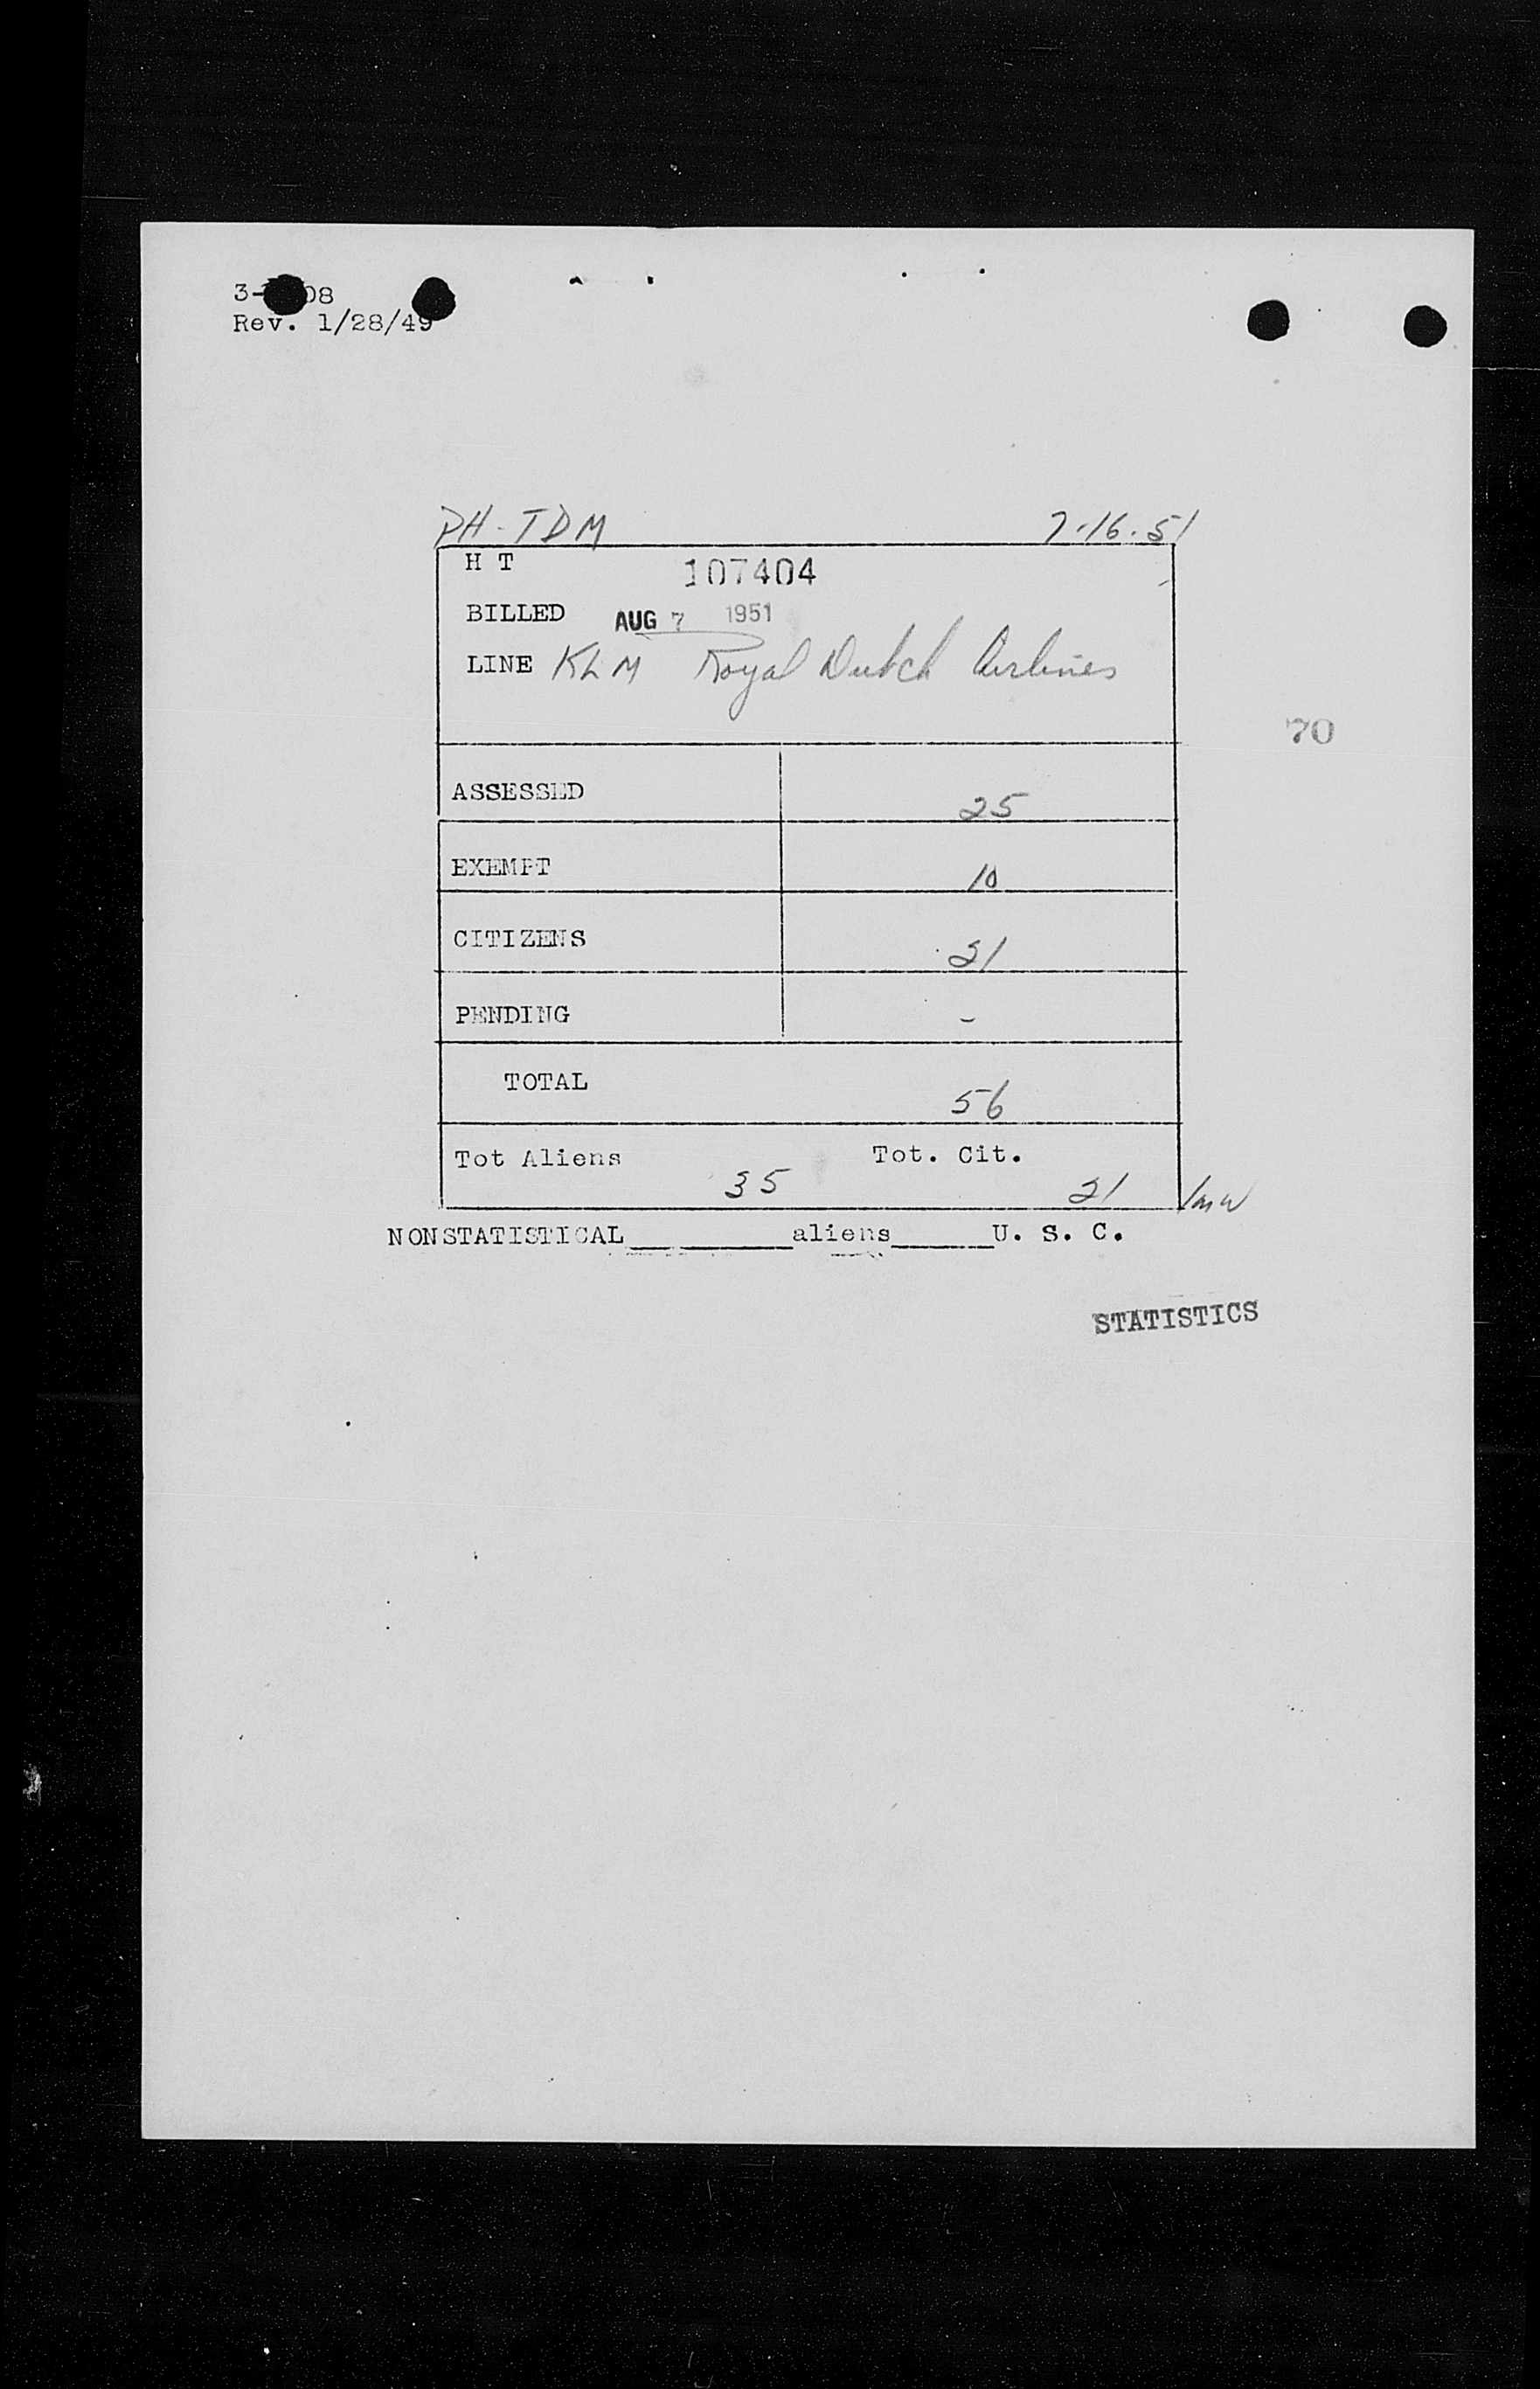 3- 08
Rev. 1/28/49
PH-TDM 7-16-51
H T 107404
BILLED AUG 7 1951
LINE KLM Royal Dutch Airlines
70
ASSESSED 25
EXEMPT 10
CITIZENS 21
PENDING -
TOTAL 56
Tot Aliens 35 Tot. Cit. 21
NONSTATISTICAL__________aliens______U. S. C.
STATISTICS